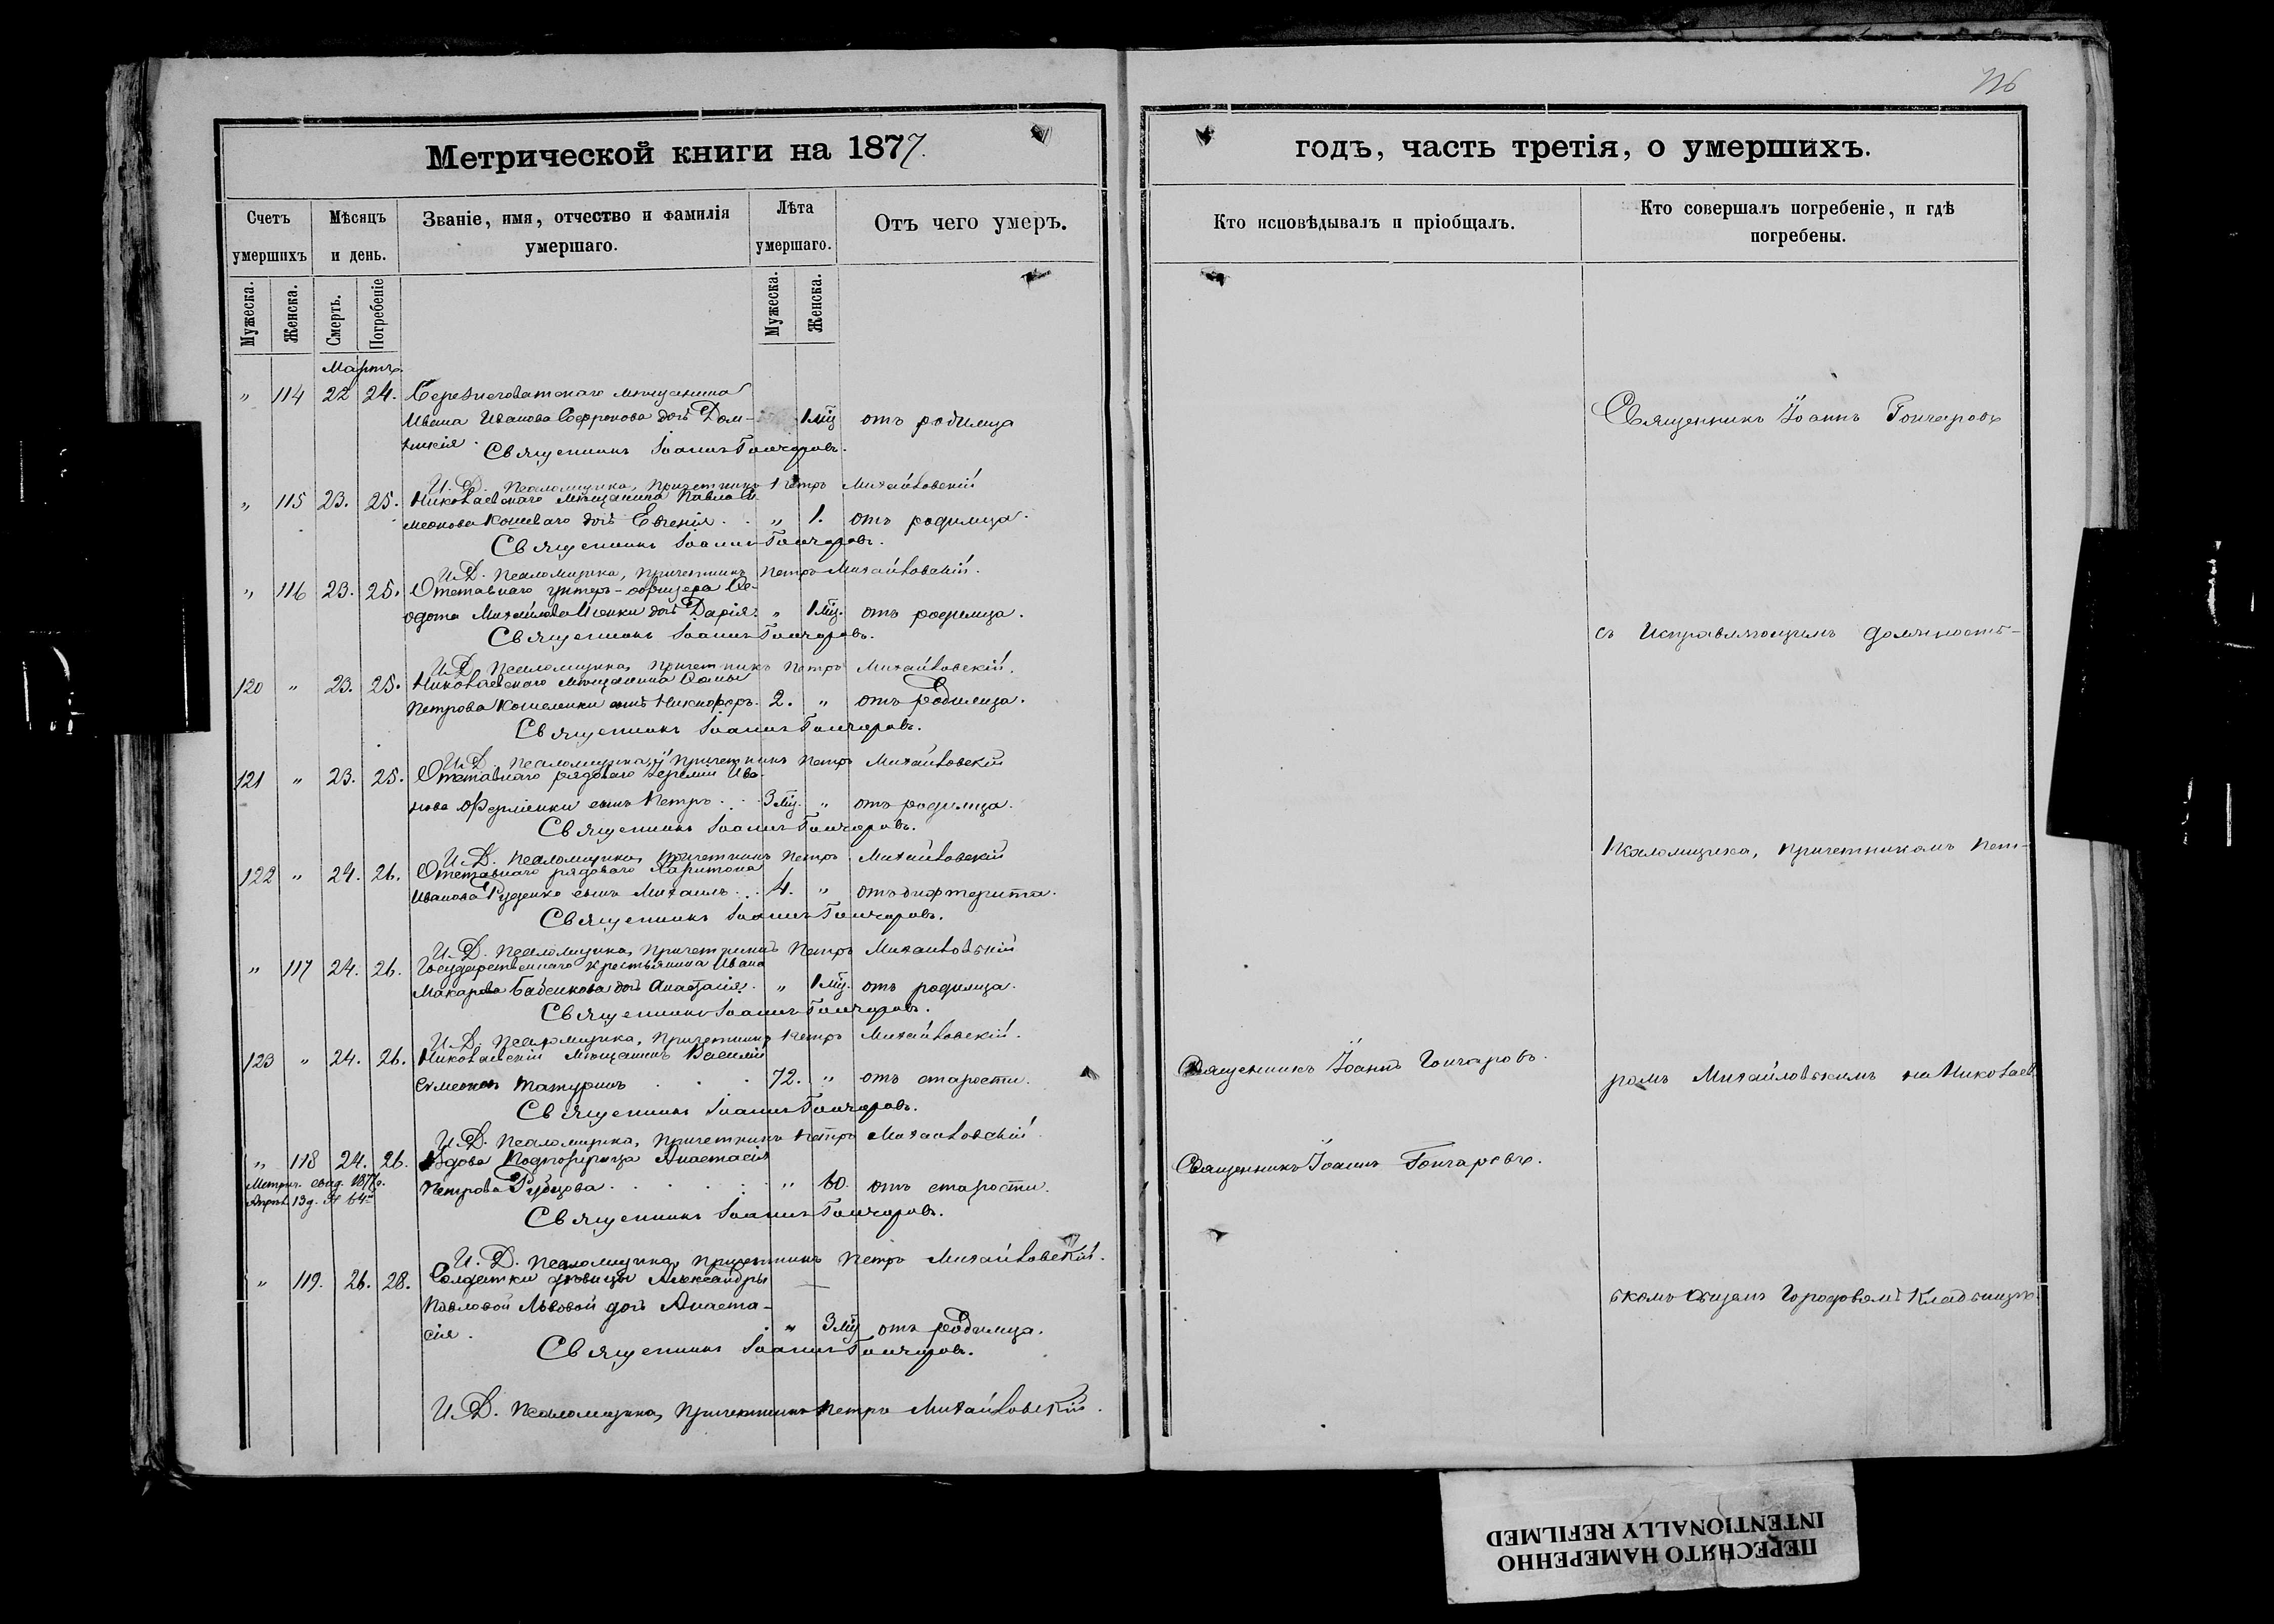 776
Метрической книги на 1877.
годъ, часть третія, о умершихъ.
Счетъ умершихъ
Мѣсяцъ и день.
Званіе, имя, отчество и фамилія умершаго.
Лѣта умершаго.
Отъ чего умеръ.
Кто исповѣдывалъ и пріобщалъ.
Кто совершалъ погребеніе, и гдѣ погребены.
Мужеска. Женска. Смерть. Погребеніе Мужеска. Женска.
Мартъ
" 114 22 24. Березнеговатскаго мѣщанина
Ивана Иванова Софронова дочь Дом- 1 мц отъ родимца
никія.
Священникъ Іоаннъ Гончаровъ.
И. Д. Псаломщика, Причетникъ Петръ Михайловскій
" 115 23. 25. Николаевскаго мѣщанина Павла Си-
меонова Кошеваго дочь Евгенія . . " 1. отъ родимца.
Священникъ Іоаннъ Гончаровъ.
И. Д. Псаломщика, Причетникъ Петръ Михайловскій.
" 116 23. 25. Отставнаго унтеръ-офицера Ѳе-
одота Михайлова дочь Дарія. " 1 мц. отъ родимца.
Священникъ Іоаннъ Гончаровъ.
И. Д. Псаломщика, Причетникъ Петръ Михайловскій.
120 " 23. 25. Николаевскаго мѣщанина
Петрова Кошеленки сынъ Никифоръ. 2. " отъ родимца.
Священникъ Іоаннъ Гончаровъ.
И. Д. Псаломщика, Причетникъ Петръ Михайловскій
121 " 23. 25. Отставнаго рядоваго Іереміи Ива-
нова сынъ Петръ . . 3 мц. " отъ родимца.
Священникъ Іоаннъ Гончаровъ.
И. Д. Псаломщика, Причетникъ Петръ Михайловскій
122 " 24. 26. Отставнаго рядоваго Харитона
Иванова Руденко сынъ Михаилъ . . 4. " отъ дифтерита.
Священникъ Іоаннъ Гончаровъ.
И. Д. Псаломщика, Причетникъ Петръ Михайловскій
" 117 24. 26. Государственнаго крестьянина Ивана
Макарова Бабенкова дочь Анастасія. " 1 мц. отъ родимца.
Священникъ Іоаннъ Гончаровъ.
И. Д. Псаломщика, Причетникъ Петръ Михайловскій.
123 " 24. 26. Николаевскій мѣщанинъ Василій
Симеоновъ Татуринъ . . . 72. " отъ старости.
Священникъ Іоаннъ Гончаровъ.
И. Д. Псаломщика, Причетникъ Петръ Михайловскій
" 118 24. 26. Вдова Анастасія
Петрова Рубцова . . . . . " 60. отъ старости.
Священникъ Іоаннъ Гончаровъ.
И. Д. Псаломщика, Причетникъ Петръ Михайловскій.
" 119. 26. 28. Солдатки дѣвицы Александры
Павловой Львовой дочь Анаста-
сія. " 3 мц отъ родимца.
Священникъ Іоаннъ Гончаровъ.
И. Д. Псаломщика, Причетникъ Петръ Михайловскій.
Священникъ Іоаннъ Гончаровъ.
Священникъ Іоаннъ Гончаровъ.
Священникъ Іоаннъ Гончаровъ
съ Исправляющимъ должность-
Псаломщика, Причетникомъ Пет-
ромъ Михайловскимъ на Николаев-
скомъ общемъ Городовомъ Кладбищѣ.
ПЕРЕСНЯТО НАМЕРЕННО
INTENTIONALLY REFILMED